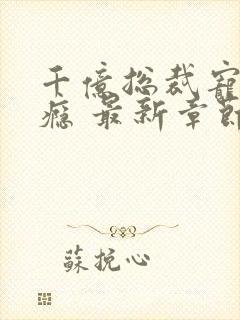 千億总裁寵
瘾 最新章節
蘇挽心